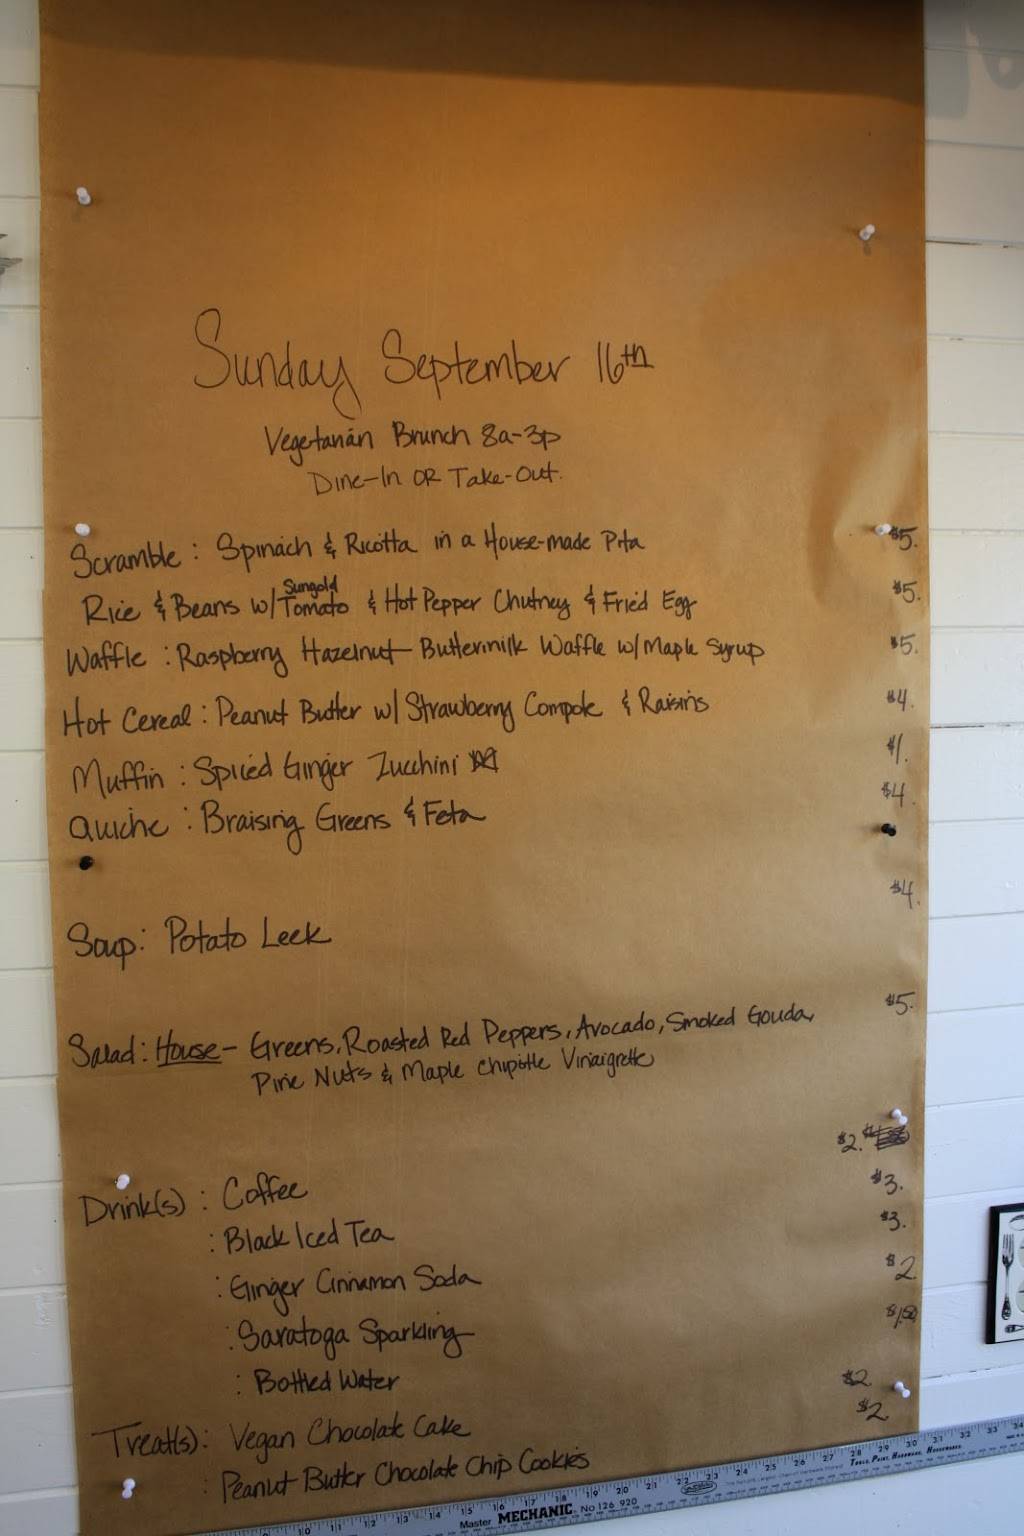 Sunday September 16th
Vegetarian Brunch 8a-3p
Dine-In OR Take-Out.
Scramble: Spinach & Ricotta in a House-made Pita $5.
Rice & Beans w/ Sungold Tomato & Hot Pepper Chutney & Fried Egg $5.
Waffle: Raspberry Hazelnut Buttermilk Waffle w/ Maple Syrup $5.
Hot Cereal: Peanut Butter w/ Strawberry Compote & Raisins $4.
Muffin: Spiced Ginger Zucchini $1.
Quiche: Braising Greens & Feta $4.
Soup: Potato Leek $4.
Salad: House - Greens, Roasted Red Peppers, Avocado, Smoked Gouda, $5.
Pine Nuts & Maple Chipotle Vinaigrette
Drink(s): Coffee $2.
: Black Iced Tea $3.
: Ginger Cinnamon Soda $3.
: Saratoga Sparkling $2
: Bottled Water $1.50
Treat(s): Vegan Chocolate Cake $2
: Peanut Butter Chocolate Chip Cookies $2
10 11 12 13 14 15 16 17 18 19 20 21 22 23 24 25 26 27 28 29 30 31 32 33 34
Master MECHANIC. No 126 920
TOOLS, PAINT, HARDWARE, HOUSEWARES.